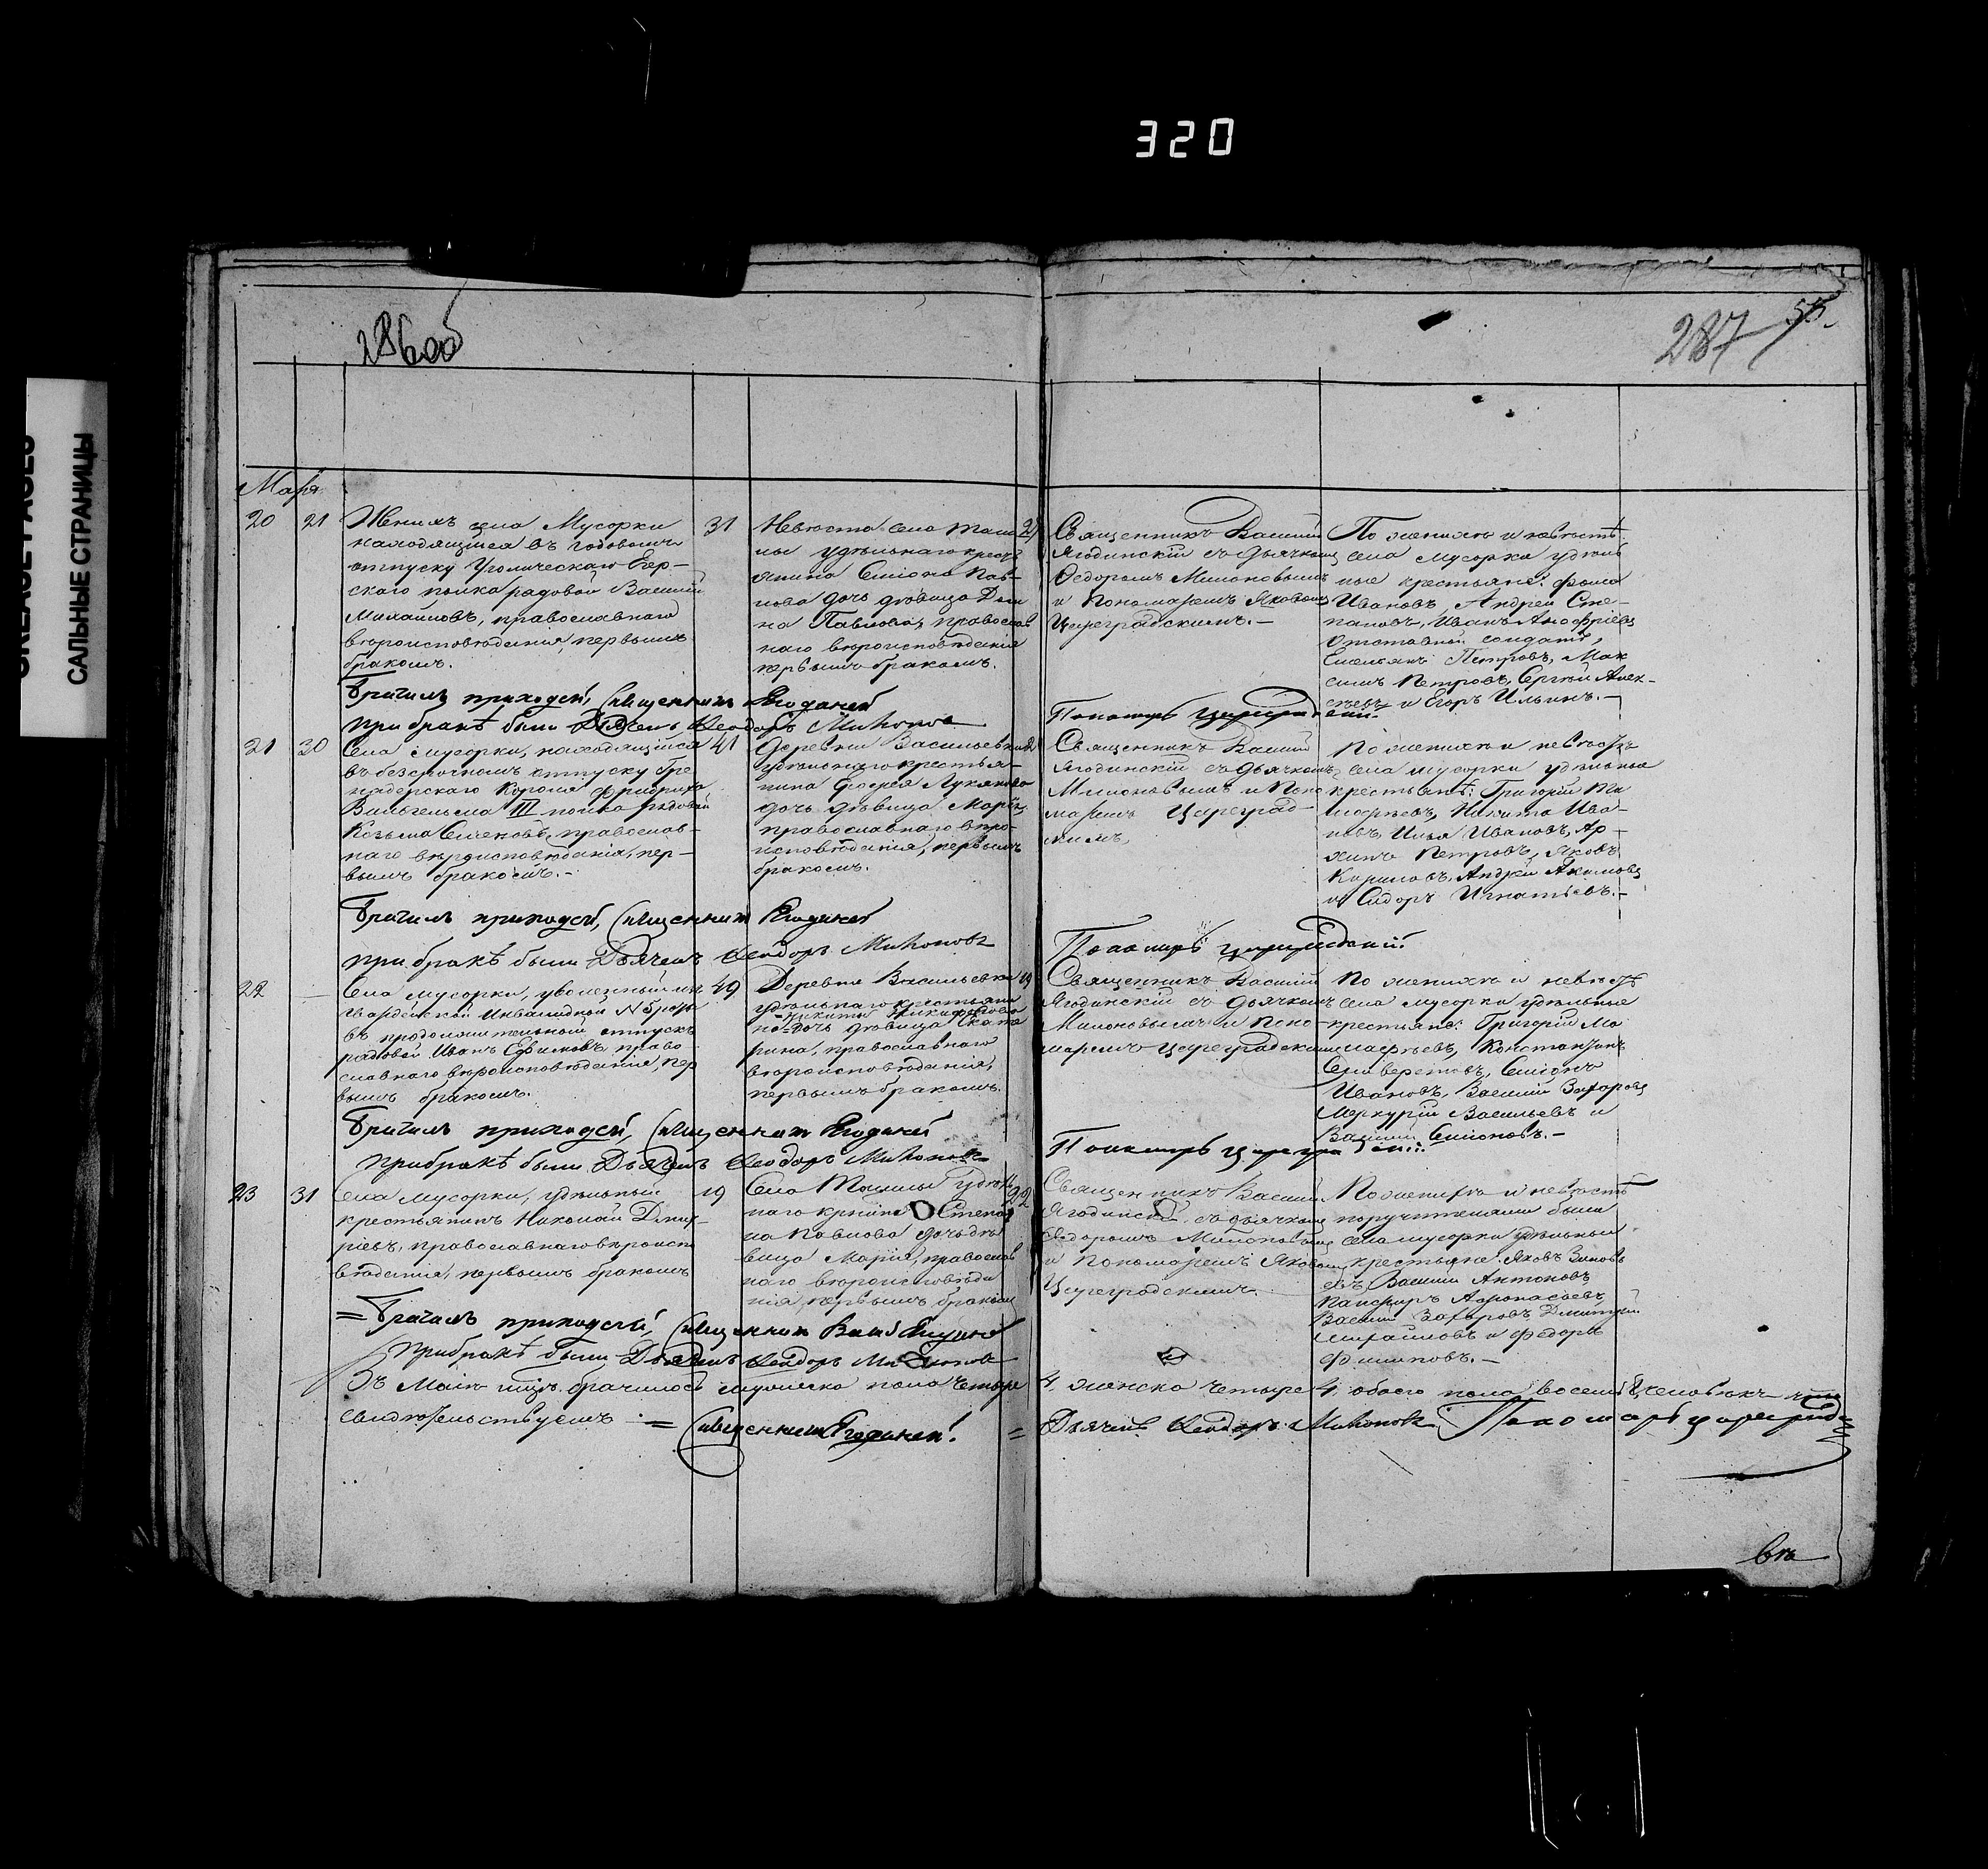 320
САЛЬНЫЕ СТРАНИЦЫ
286об
287
55.
20
21
Женихъ села Мусорки
находящійся въ годовомъ
отпуску Угличскаго Егер-
скаго полка рядовой Василій
Михайловъ, православнаго
вѣроисповѣданія, первымъ
бракомъ.
31
Невѣста села Таш
лы удѣльнаго крест
янина Семіона Пав-
лова дочь дѣвица
Павлова, православ
наго вѣроисповѣданія
первымъ бракомъ.
21
Священникъ Василій
Ягодинскій съ дьячкомъ
Ѳедоромъ Милоновымъ
и Пономаремъ Яковомъ
Цареградскимъ.-
По женихѣ и невѣстѣ
села Мусорки удѣль
ные крестьяне: Фома
Ивановъ, Андрей Сте-
пановъ, Иванъ
Отставной солдатъ,
Емельянъ Петровъ, Мак
симъ Петровъ, Сергѣй Алек-
сѣевъ и Егоръ Ильинъ.-
Бракъ приходской, Священникъ Ягодинской
при бракѣ были Дьячекъ Ѳеодоръ Милоновъ
Пономарь Цареградской.
21
30
Села Мусорки, находящійся
въ безсрочномъ отпуску Гре
надерскаго Короля Фридриха
Вильгельма III полка рядовой
Козьма Семеновъ, православ-
наго вѣроисповѣданія, пер-
вымъ бракомъ.-
41
Деревни Васильевки
удѣльнаго крестья-
нина Лукянова
дочь дѣвица Марія,
православнаго вѣро-
исповѣданія, первымъ
бракомъ.
Священникъ Василій
Ягодинскій съ дьячкомъ
Милоновымъ и Поно
маремъ Цареград-
скимъ,
По женихѣ и невѣстѣ
села Мусорки удѣльные
крестьяне: Григорій Ма
Никита Ива-
новъ, Илья Ивановъ, Ар-
хипъ Петровъ, Яковъ
Кириловъ, Андрей Акимовъ
и Сидоръ Игнатьевъ.-
Бракъ приходской, Священникъ Ягодинской
при бракѣ были Дьячекъ Ѳеодоръ Милоновъ
Пономарь Цареградской.
22
Села Мусорки, уволенный изъ
Гвардейской Инвалидной роты
въ продолжительный отпускъ
рядовой Иванъ Ефимовъ право
славнаго вѣроисповѣданія, пер
вымъ бракомъ.
49
Деревни Васильевки
удѣльнаго крестьяни
Никиты Никифорова
на дочь дѣвица Екате
рина, православнаго
вѣроисповѣданія,
первымъ бракомъ.
19
Священникъ Василій
Ягодинскій съ дьячкомъ
Милоновымъ и Поно-
маремъ Цареградскимъ
По женихѣ и невѣстѣ
села Мусорки удѣльные
крестьяне: Григорій Ма
Константинъ
Семіонъ
Ивановъ, Василій Захаровъ
Меркурій Васильевъ и
Василій Семіоновъ.-
Бракъ приходской, Священникъ Ягодинской
при бракѣ были Дьячекъ Ѳеодоръ Милоновъ
Пономарь Цареградской.
23
31
Села Мусорки, удѣльный
крестьянинъ Николай Дмит-
ріевъ, православнаго вѣроисп
вѣданія, первымъ бракомъ
19
Села Ташлы удѣль
наго крестьянина Степа
на Павлова дочь дѣ
вица Марія, православ
наго вѣроисповѣда
нія первымъ бракомъ
22
Священникъ Василій
Ягодинскій съ дьячкомъ
Ѳедоромъ Милоновымъ
и Пономаремъ Яковомъ
Цареградскимъ
По женихѣ и невѣстѣ
поручителями были
села Мусорки удѣльные
крестьяне: Яковъ Зиновь
евъ, Василій Антоновъ,
Афанасьевъ
Василій Захаровъ Дмитрій
Михайловъ и Федоръ
Филиповъ.-
Бракъ приходской, Священникъ Ягодинской
При бракѣ были Дьячекъ Ѳеодоръ Милоновъ
Въ Маіѣ мцѣ брачилось мужеска пола четыре 4, женска четыре 4, обоего пола восемь 8 человѣкъ
Свидѣтельствуемъ = Священникъ Ягодинской. = Дьячекъ Ѳеодоръ Милоновъ Пономарь Цареградской